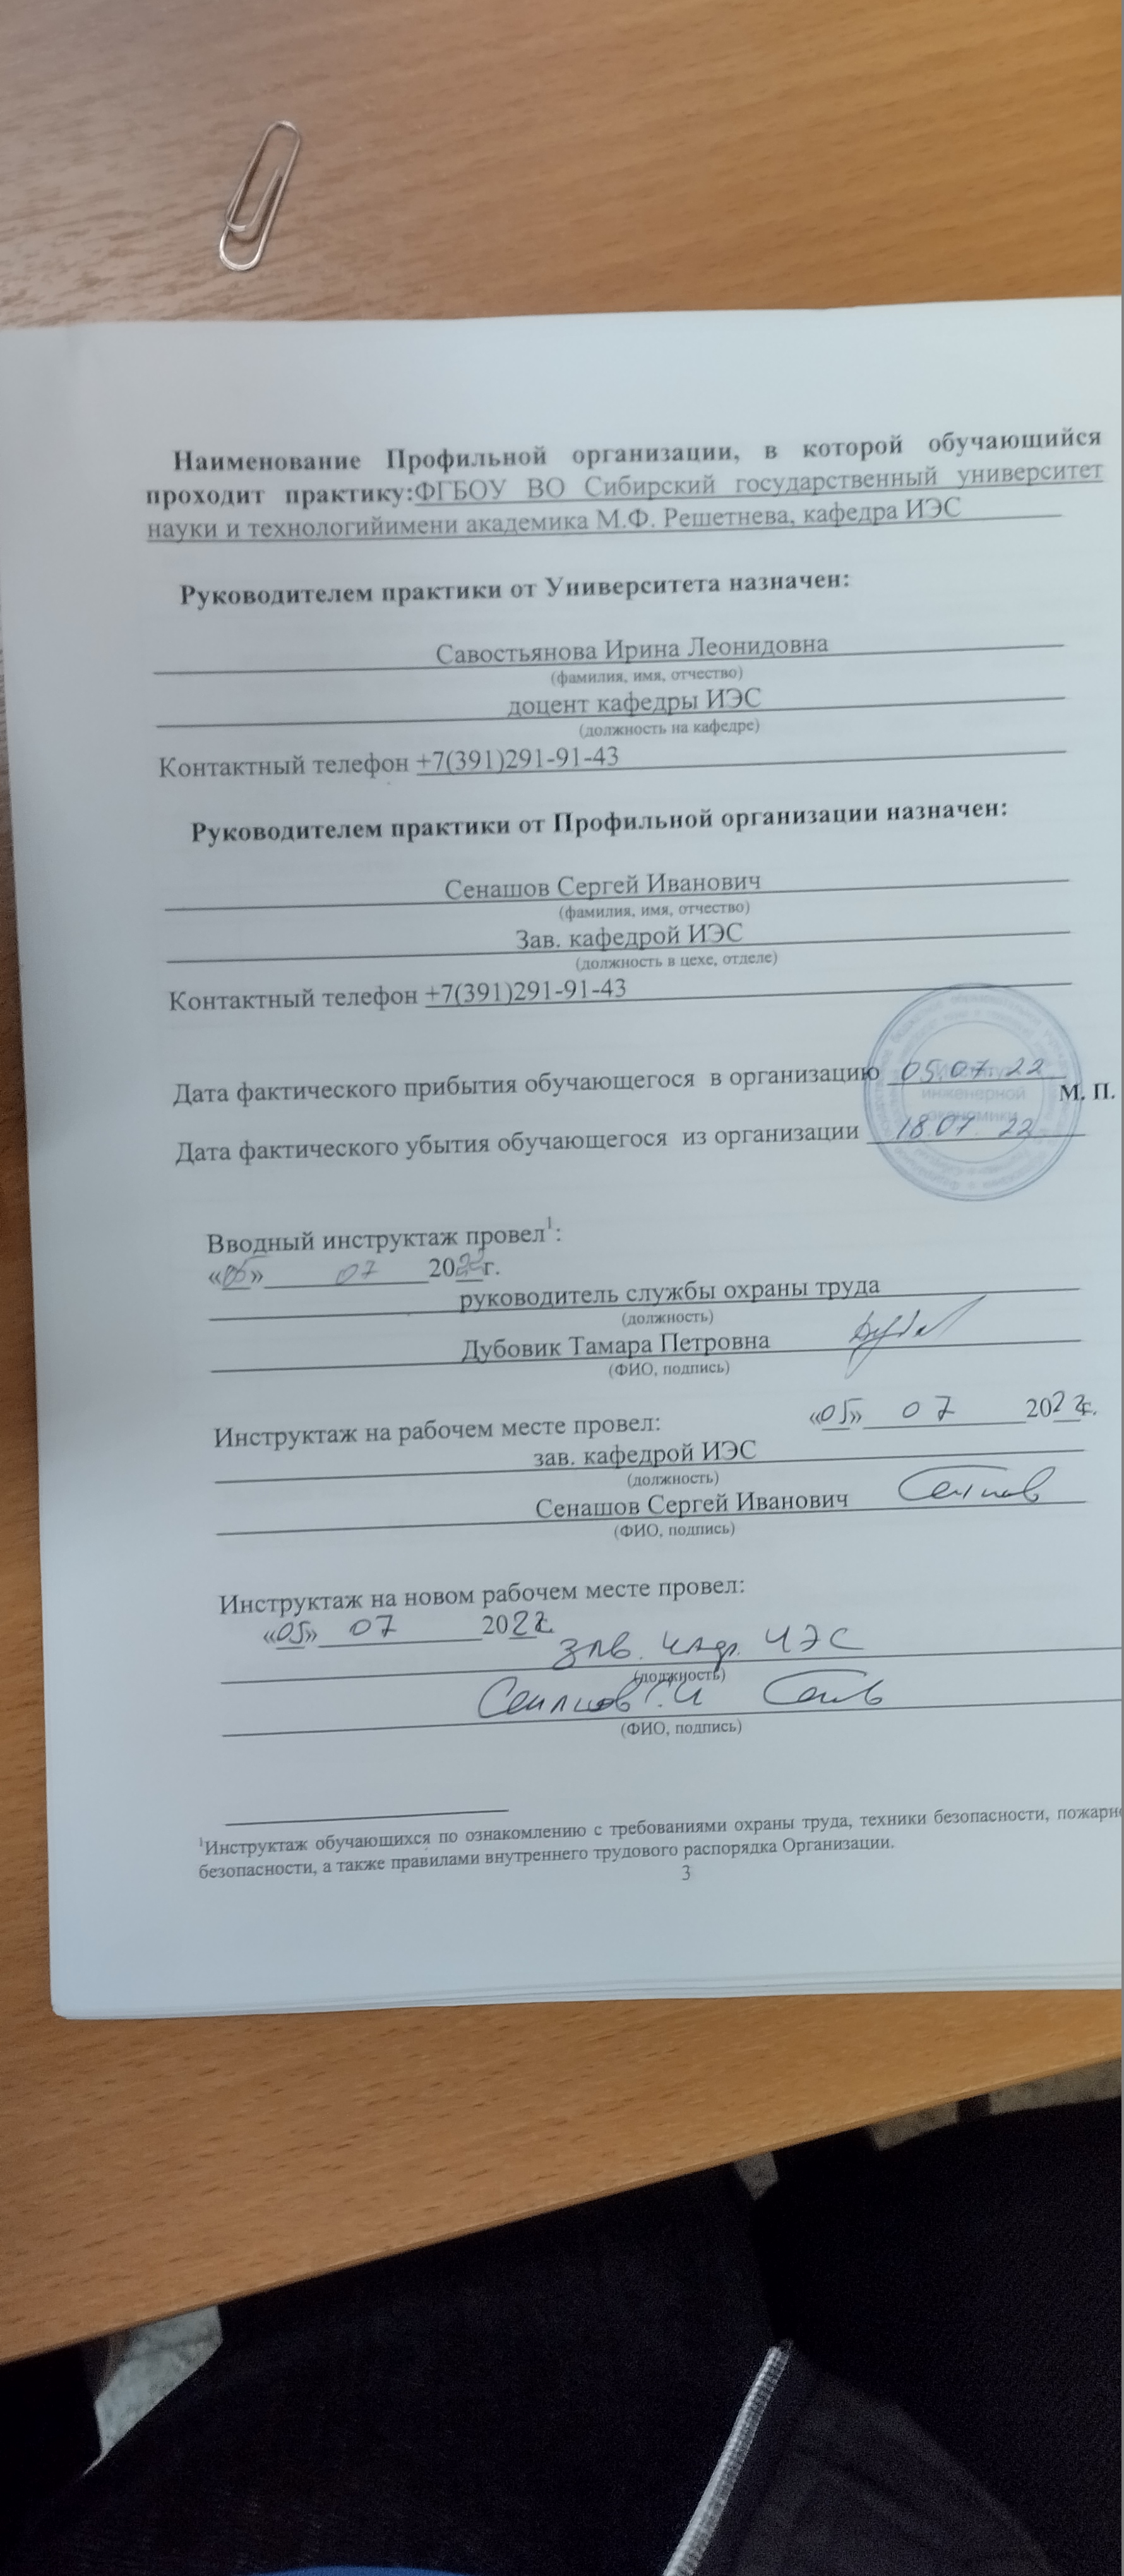 Наименование Профильной организации, в которой обучающийся
проходит практику:ФГБОУ ВО Сибирский государственный университет
науки и технологийимени академика М.Ф. Решетнева, кафедра ИЭС
Руководителем практики от Университета назначен:
Савостьянова Ирина Леонидовна
(фамилия, имя, отчество)
доцент кафедры ИЭС
(должность на кафедре)
Контактный телефон +7(391)291-91-43
Руководителем практики от Профильной организации назначен:
Сенашов Сергей Иванович
(фамилия, имя, отчество)
Зав. кафедрой ИЭС
(должность в цехе, отделе)
Контактный телефон +7(391)291-91-43
Дата фактического прибытия обучающегося в организацию 05.07.22
инженерной
экономики
М. П.
Дата фактического убытия обучающегося из организации 18.07.22
Вводный инструктаж провел1:
«05» 07 2022г.
руководитель службы охраны труда
(должность)
Дубовик Тамара Петровна
(ФИО, подпись)
Инструктаж на рабочем месте провел: «05» 07 2022г.
зав. кафедрой ИЭС
(должность)
Сенашов Сергей Иванович
(ФИО, подпись)
Инструктаж на новом рабочем месте провел:
«05» 07 2022г.
зав. кафр. ИЭС
(должность)
Сенашов С.И
(ФИО, подпись)
1Инструктаж обучающихся по ознакомлению с требованиями охраны труда, техники безопасности, пожарн
безопасности, а также правилами внутреннего трудового распорядка Организации.
3